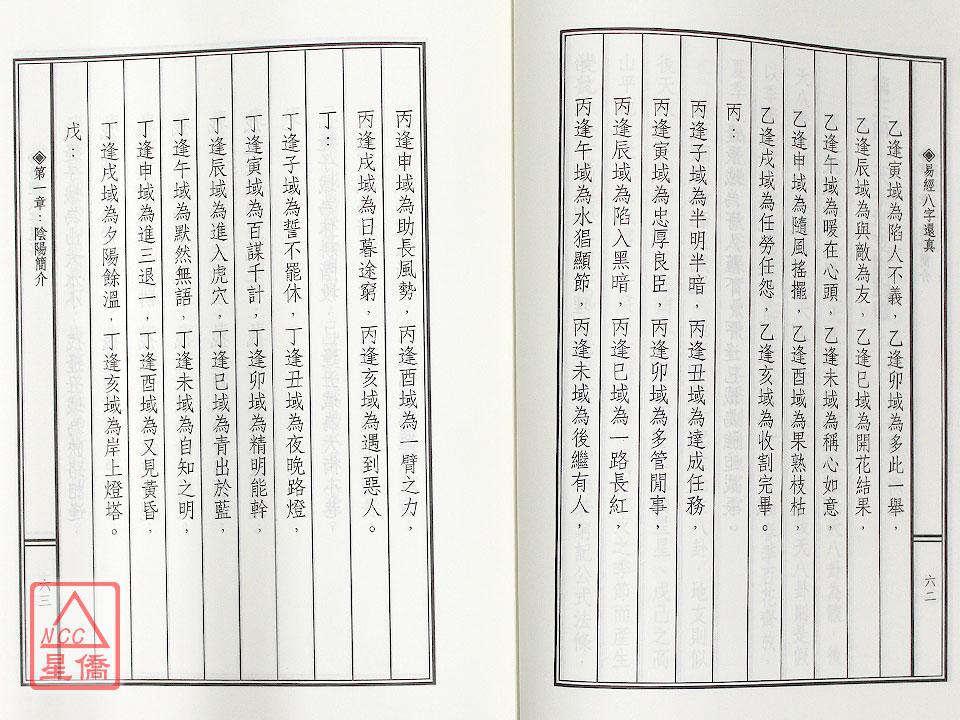 易經八字還真
六二
乙逢寅域為陷人不義，乙逢卯域為多此一舉，
乙逢辰域為與敵為友，乙逢巳域為開花結果，
乙逢午域為暖在心頭，乙逢未域為稱心如意，
乙逢申域為隨風搖擺，乙逢酉域為果熟枝枯，
乙逢戌域為任勞任怨，乙逢亥域為收割完畢。
丙：
丙逢子域為半明半暗，丙逢丑域為達成任務，
丙逢寅域為忠厚良臣，丙逢卯域為多管閒事，
丙逢辰域為陷入黑暗，丙逢巳域為一路長紅，
丙逢午域為水猖顯節，丙逢未域為後繼有人，
丙逢申域為助長風勢，丙逢酉域為一臂之力，
丙逢戌域為日暮途窮，丙逢亥域為遇到惡人。
丁：
丁逢子域為誓不罷休，丁逢丑域為夜晚路燈，
丁逢寅域為百謀千計，丁逢卯域為精明能幹，
丁逢辰域為進入虎穴，丁逢巳域為青出於藍，
丁逢午域為默然無語，丁逢未域為自知之明，
丁逢申域為進三退一，丁逢酉域為又見黃昏，
丁逢戌域為夕陽餘溫，丁逢亥域為岸上燈塔。
戊：
第一章：陰陽簡介
六三
NCC
星僑